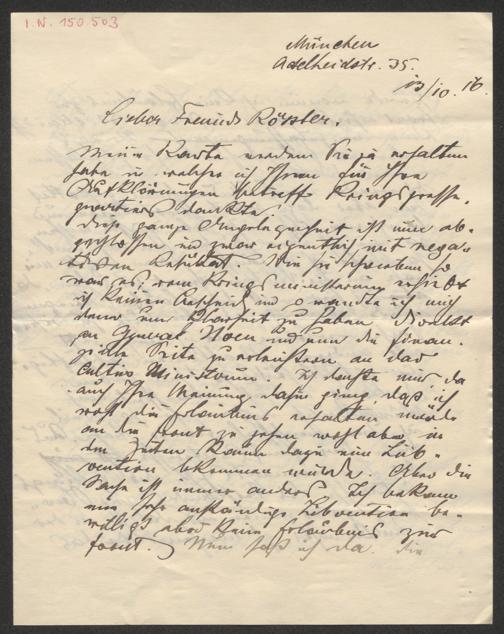 I.N. 150.503
München
Adelheidstr. 35.
13/10. 16.
Lieber Freund Rössler.
Meine Karte werden Sie ja erhalten
habe in welcher ich Ihnen für Ihre
Aufklärungen betreff Kriegspresse,
quartiers dankte.
Diese ganze Angelegenheit ist nun ab-
geschlossen und zwar eigentlich mit nega-
tiven Resultat. Wie Sie schreiben so
war es, vom Kriegsministerium erhielt
ich keinen Bescheid und so wandte ich mich
denn um Klarheit zu haben direkt
an General Hoen und um die finan-
zielle Seite zu erläutern an das
Cultus Ministerium. Ich dachte mir, da
auch Ihre Meinung dahin ging, daß ich
wohl die Erlaubnis erhalten würde
an die Front zu gehen wohl aber in
den Zeiten kaum dazu eine Sub-
vention bekommen würde. Aber die
Sache ist immer anders. Ich bekam
eine sehr anständige Subvention be-
willigt aber keine Erlaubnis zur
Front. Nun saß ich da. die